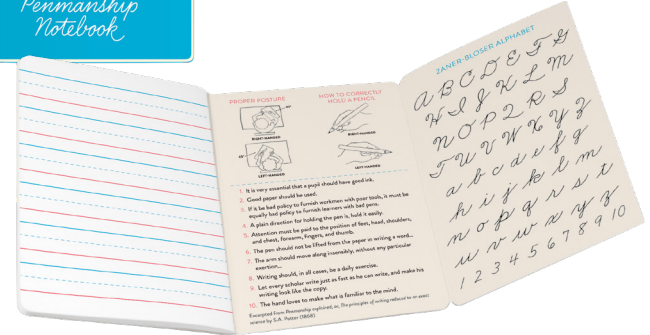 Penmanship
Notebook
PROPER POSTURE
RIGHT-HANDED
LEFT-HANDED
HOW TO CORRECTLY
HOLD A PENCIL
RIGHT-HANDED
LEFT-HANDED
1. It is very essential that a pupil should have good ink.
2. Good paper should be used.
3. If it be bad policy to furnish workmen with poor tools, it must be
equally bad policy to furnish learners with bad pens.
4. A plain direction for holding the pen is, hold it easily.
5. Attention must be paid to the position of feet, head, shoulders,
and chest, forearm, fingers, and thumb.
6. The pen should not be lifted from the paper in writing a word...
7. The arm should move along insensibly, without any particular
exertion...
8. Writing should, in all cases, be a daily exercise.
9. Let every scholar write just as fast as he can write, and make his
writing look like the copy.
10. The hand loves to make what is familiar to the mind.
Excerpted from Penmanship explained, or, The principles of writing reduced to an exact
science by S.A. Potter (1868)
ZANER-BLOSER ALPHABET
A B C D E F G
H I J K L M
N O P Q R S
T U V W X Y Z
a b c d e f g
h i j k l m
n o p q r s t
u v w x y z
1 2 3 4 5 6 7 8 9 10